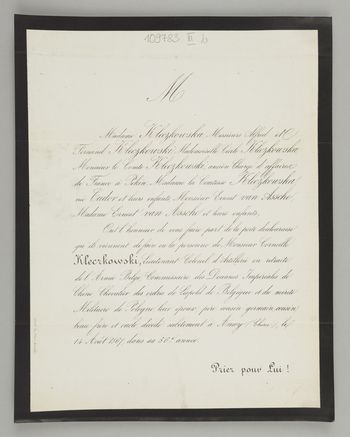 109783 III b
M
Madame Kleczkowska, Messieurs Alfred et
Fernand Kleczkowski, Mademoiselle Kleczkowska,
Monsieur le Comte Kleczkowski, ancien Chargé d'affaires
de France à Pékin, Madame la Comtesse Kleczkowska
née et leurs enfants, Monsieur Ernest van Assche,
Madame Ernest van Assche et leurs enfants,
Ont l'honneur de vous faire part de la perte douloureuse
qu'ils viennent de faire en la personne de Monsieur Corneille
Kleczkowski, Lieutenant Colonel d'Artillerie en retraite
de l'Armée Belge, Commissaire des Douanes Impériales de
Chine, Chevalier des ordres de Léopold de Belgique et du mérite
Militaire de Pologne, leur époux, père, cousin germain, cousin,
beau frère et oncle, décédé subitement à Amoy (Chine), le
14 Août 1867, dans sa 50e année.
Priez pour Lui !